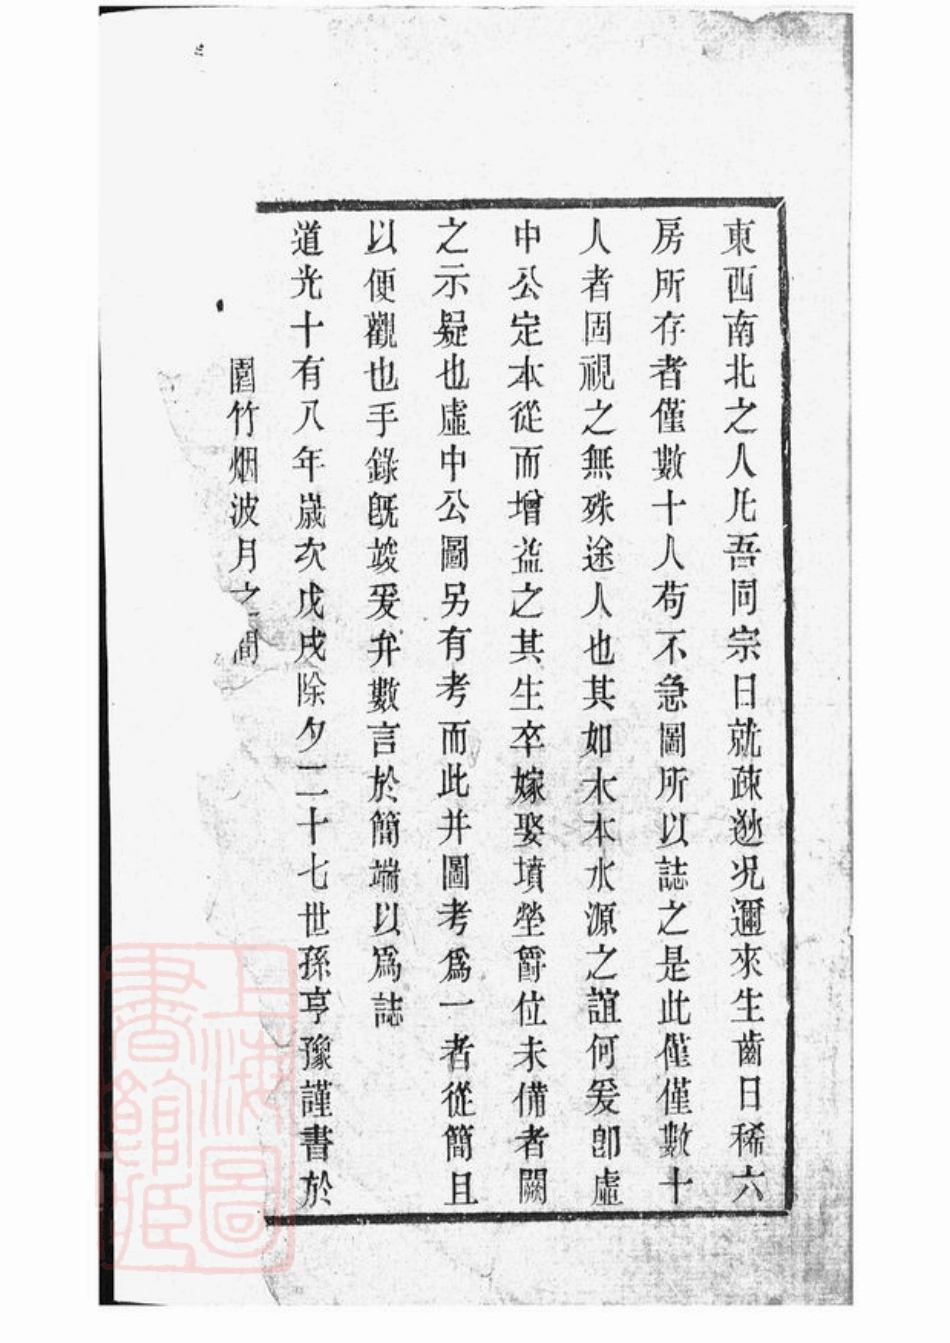 東西南北之人凡吾同宗日就疎逖况邇來生齒日稀六
房所存者僅數十人苟不急圖所以誌之是此僅僅數十
人者固視之無殊途人也其如木本水源之誼何爰卽虛
中公定本從而增益之其生卒嫁娶墳塋爵位未備者闕
之示疑也虛中公圖另有考而此并圖考爲一者從簡且
以便觀也手錄旣竣爰弁數言於簡端以爲誌
道光十有八年歲次戊戌除夕二十七世孫亨豫謹書於
園竹烟波月之間
上海圖
書館藏